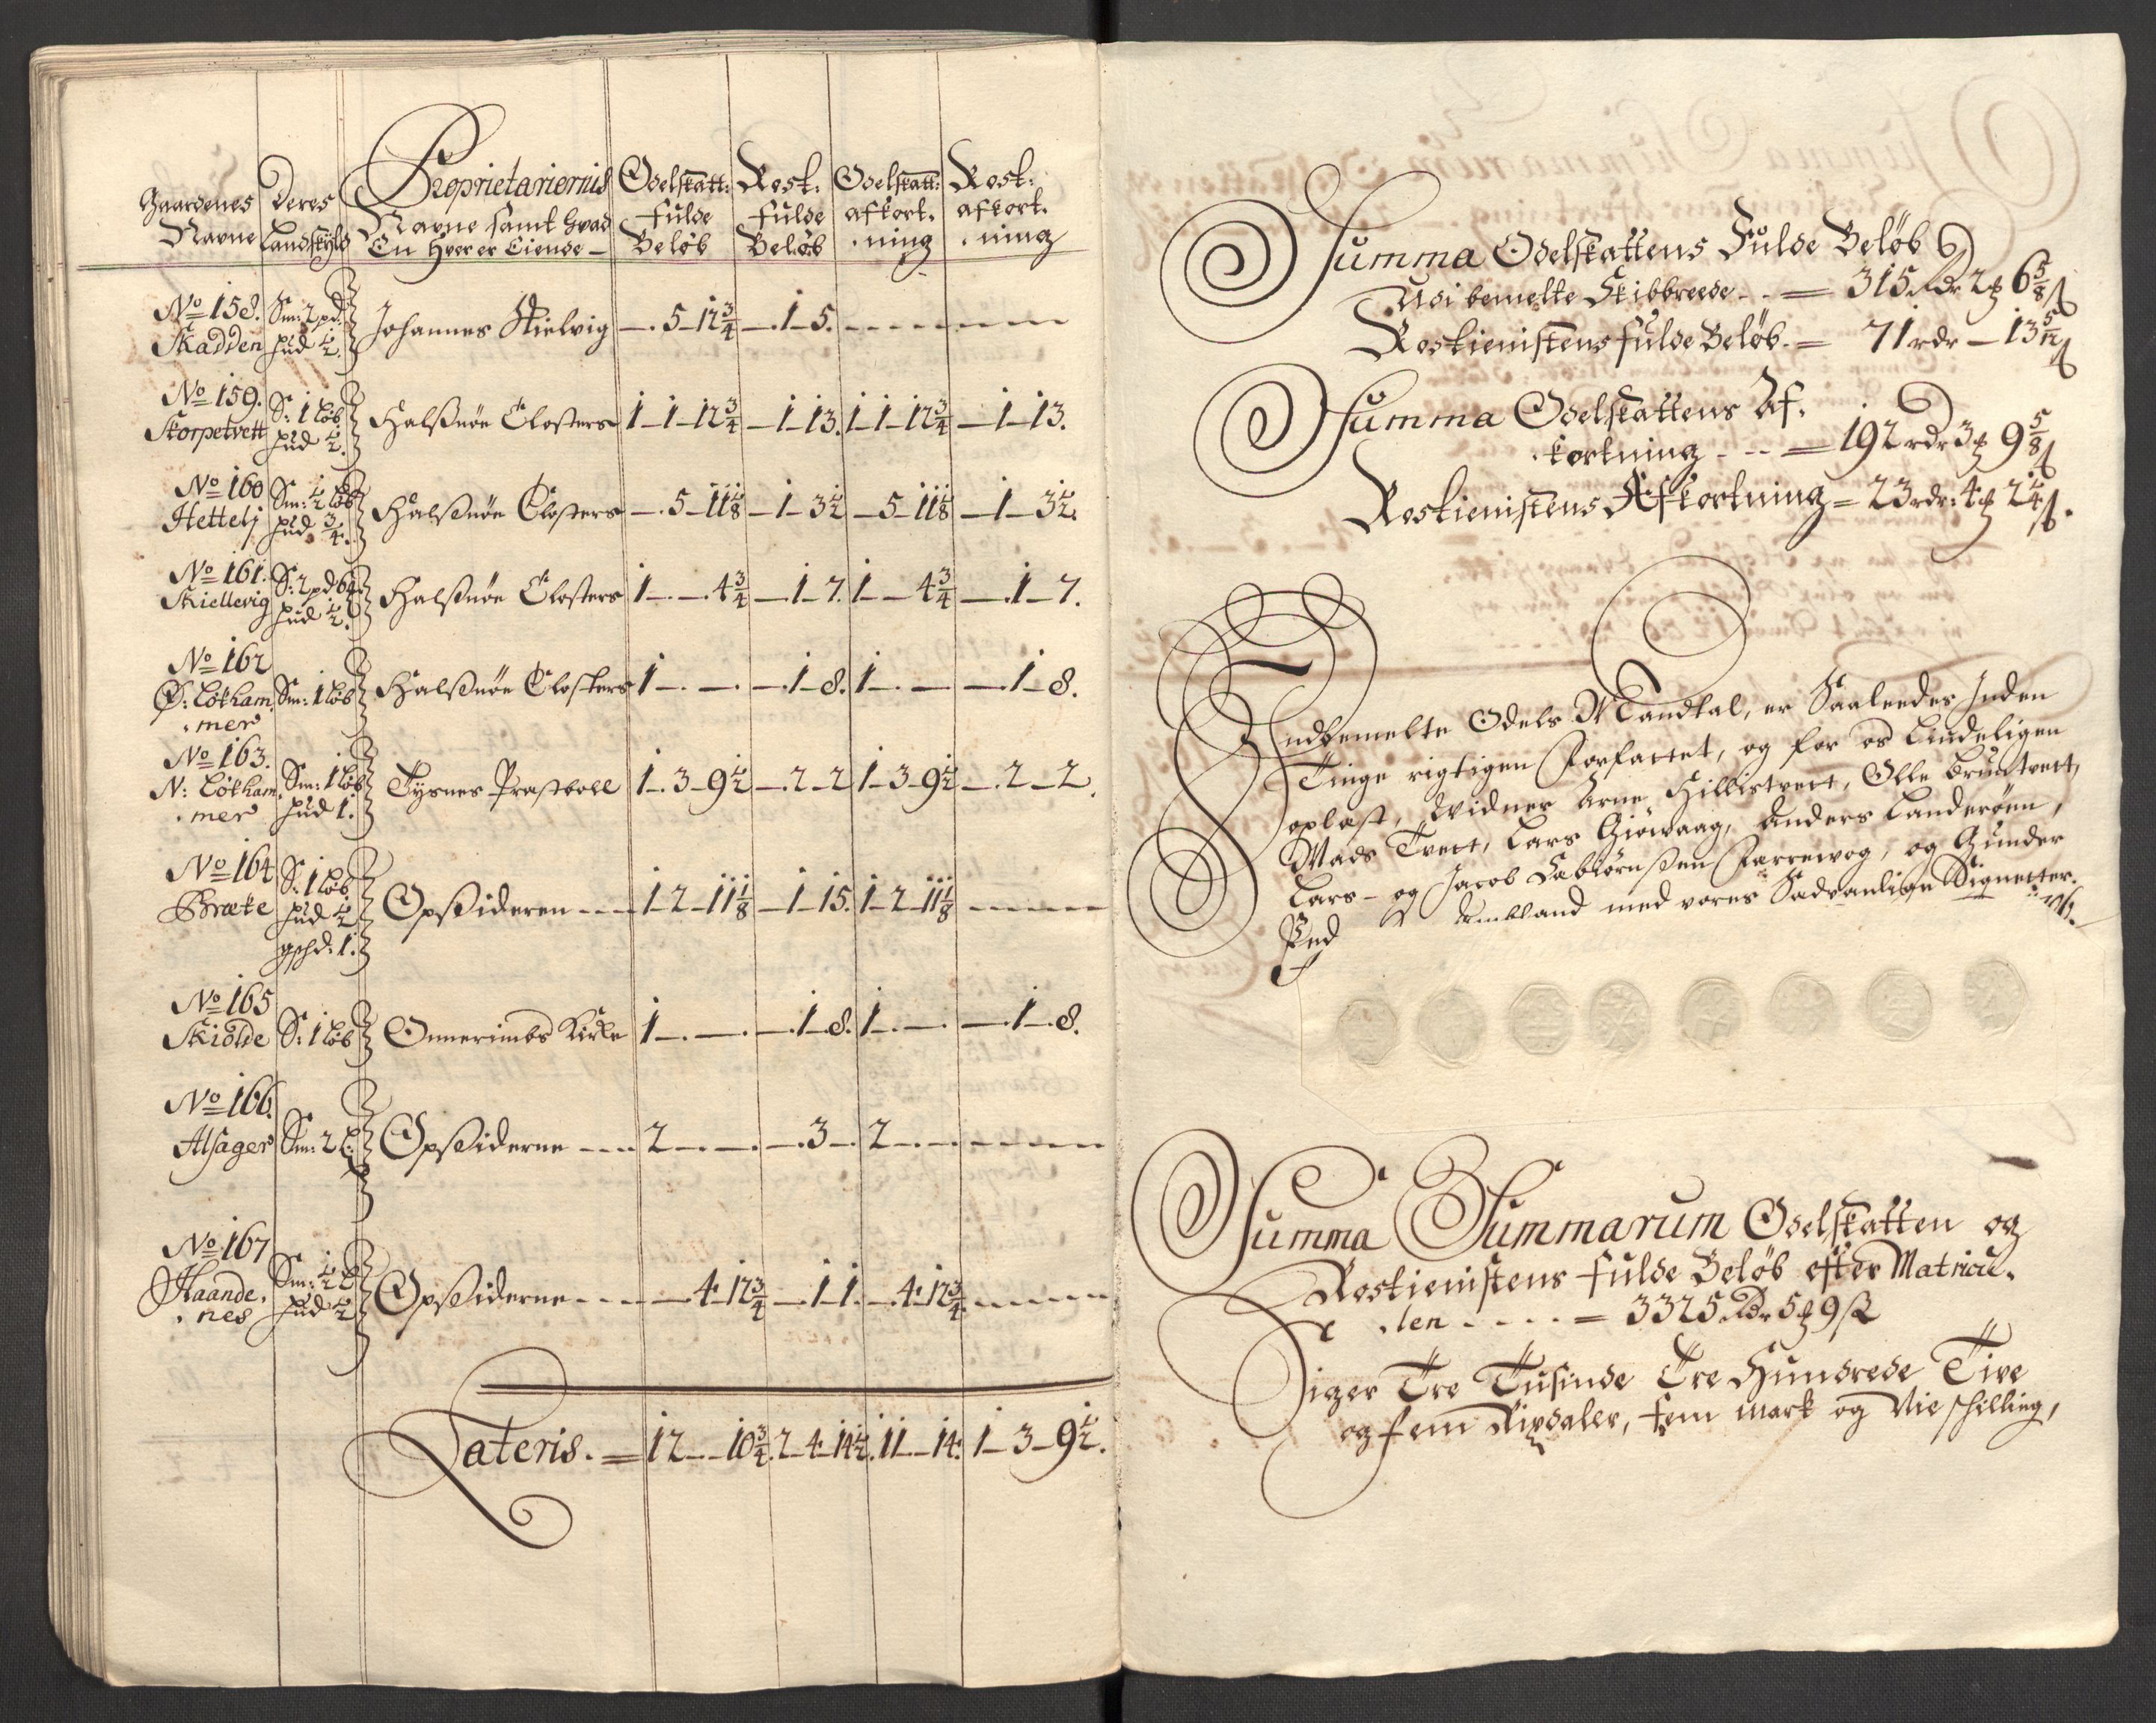 Gaardenes Navne | Deres Landskyld | Proprietariernis Navne samt hvad En hver er Eiende | Odelskatt: fulde Beløb | Rost: fulde Beløb | Odelskatt: afkort. ning | Rost: afkort. ning
No 158. Skadden | Sm: 2 pd. hud ½. | Johannes Kielvig | —.5–12¾ | —.1–5. | – – – – | – – – –
No 159. Skorpetvett | S: 1 løb hud ½. | Halsnøe Closters | 1–1–12¾ | —1–13. | 1–1–12¾ | —1–13.
No 160 Hettelj | Sm: ½ løb hud ¾. | Halsnøe Closters | —.5–11⅛ | —1–3½ | —5–11⅛ | —1–3½.
No 161. Skiellevig | S: 2 pd 6 hud ½. | Halsnøe Closters | 1–.–4¾ | —1–7. | 1–.–4¾ | —.1–7.
No 162 Ø: Løkham. mer | Sm: 1 løb | Halsnøe Closters | 1–.–. | —.1–8. | 1–.– | —.1–8.
No 163. N: Løkham. mer | Sm: 1 løb hud 1. | Tysnes Præstboll | 1–.3–9½ | —.2–2 | 1–3–9½ | —.2–2.
No 164 Bræke | S: 1 løb hud ½ gschd: 1. | Opsideren | 1–2–11⅛ | —1–15. | 1–2–11⅛ | – – – –
No 165 Skiölde | S: 1 løb | Onnerimbs Kirke | 1–.–. | —.1–8. | 1–.– | —.1–8.
No 166. Alsager | Sm: 2 l: | Opsiderne | 2–.–. | —.3–. | 2–.–. | – – – –
No 167 Haande. nes | Sm: ½ l hud ½ | Opsiderne | —.4–12¾ | —1–1. | —.4–12¾ | – – – –
Lateris. = 12–.–10¾. | 2–4–14½. | 11–.–14. | 1–3–9½.
Summa Odelskattens Fulde Beløb
Udi bemelte Skibbreede – – = 315 Rdr 2 ₰ 6⅝ ß
Rostienistens fulde Beløb. = 71 rdr – 13 5/12 ß
Summa Odelskattens Af.
kortning – – – = 192 rdr 3 ₰ 9⅝ ß
Rostienistens Afkortning = 23 rdr: 4 ₰ 2¼ ß.
Indbemelte Odels Mandtal, er Saaledes Inden
Tinge rigtigen Forfattet, og for os Lindeligen
oplæst, Widner Arne Hillistvert, Olle Bruntvert,
Mads Tvert, Lars Giöwaag, Anders Landerøen,
Lars – og Jacob Færewog, og Gunder
med vores Sædvanlige Signetter.
Summa Summarum Odelskatten og
Rostienistens fulde Beløb efter Matricu.
len – – – – = 3325 Rdr 5 ₰ 9 ß
Siger Tre Tusinde Tre Hundrede Tive
og fem Rixdaler, fem mark og Nie schilling,